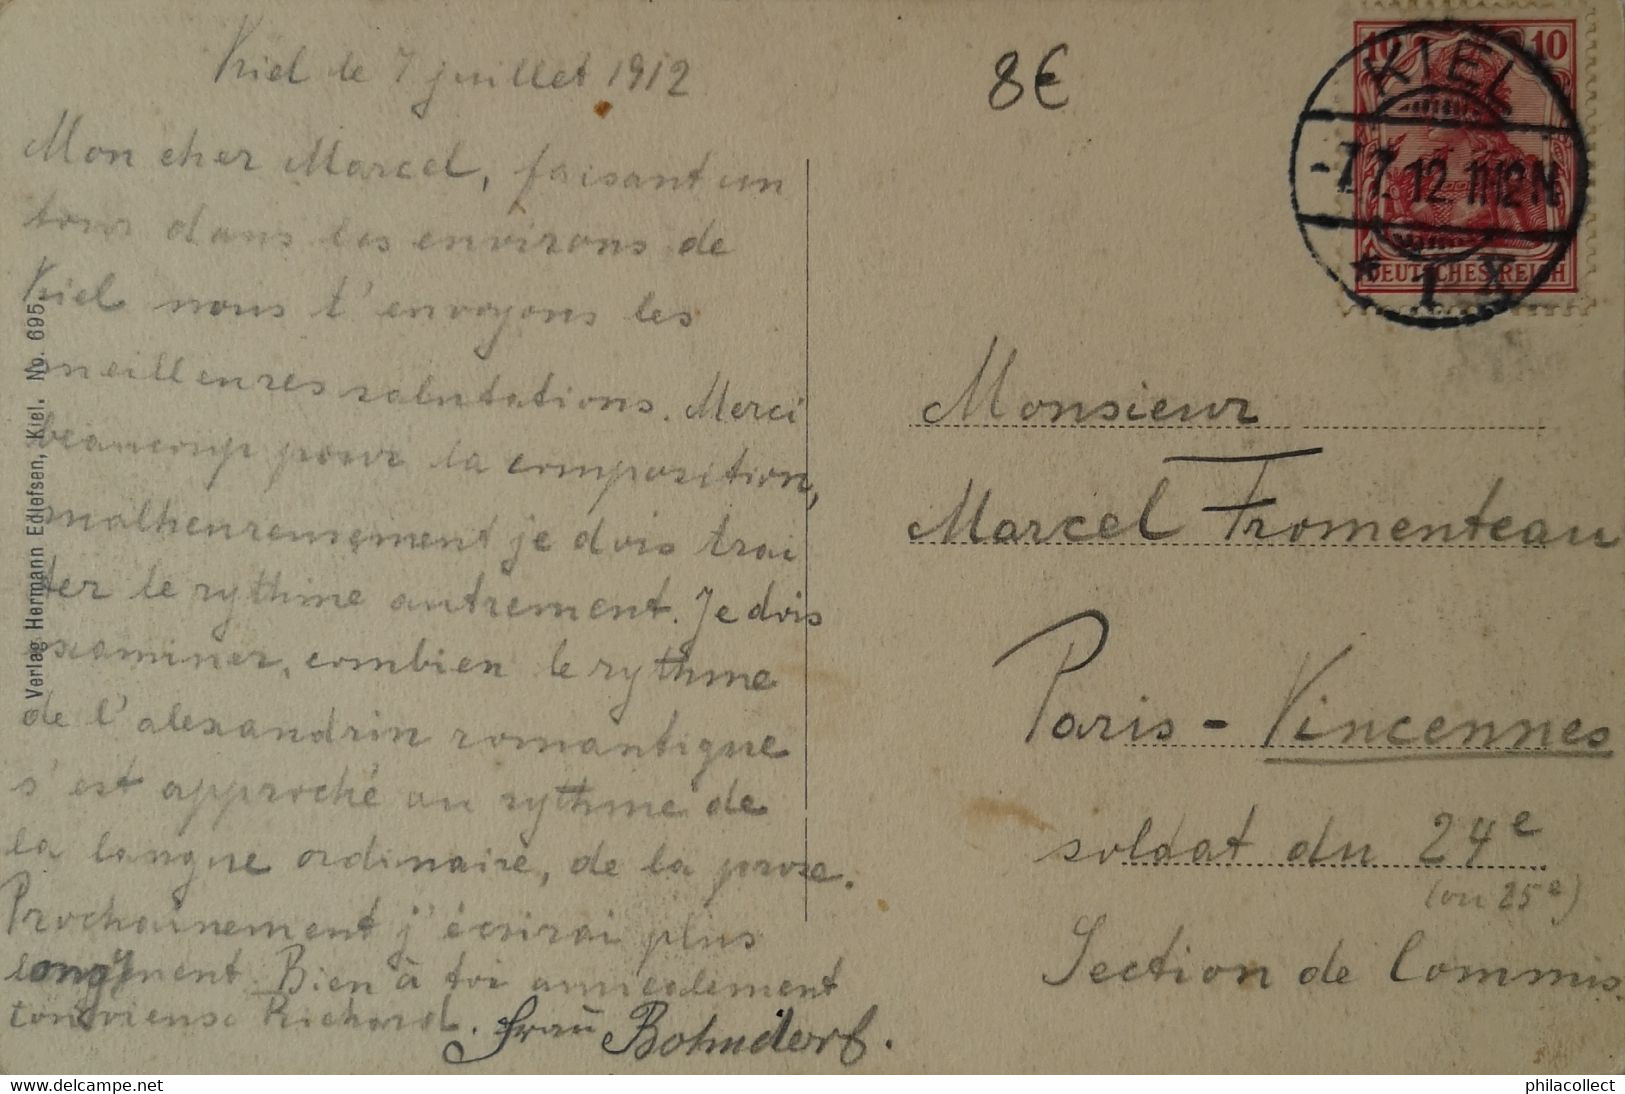 Kiel le 7 juillet 1912
Mon cher Marcel, faisant un
tour dans les environs de
Kiel nous t'envoyons les
meilleures salutations. Merci
beaucoup pour la composition,
malheureusement je dois trai
ter le rythme autrement. Je dois
examiner, combien le rythme
de l'alexandrin romantique
s'est approché au rythme de
la langue ordinaire, de la prose.
Prochainement j'écrirai plus
longuement. Bien à toi amicalement
Richard. Frau Bohndorf.
Verlag Hermann Edlefsen, Kiel. No. 695.
8€
10 10
DEUTSCHES REICH
KIEL
-7.7.12.11-12N
* 1 X
Monsieur
Marcel Fromenteau
Paris - Vincennes
soldat du 24e
(ou 25e)
Section de Commis.
philacollect